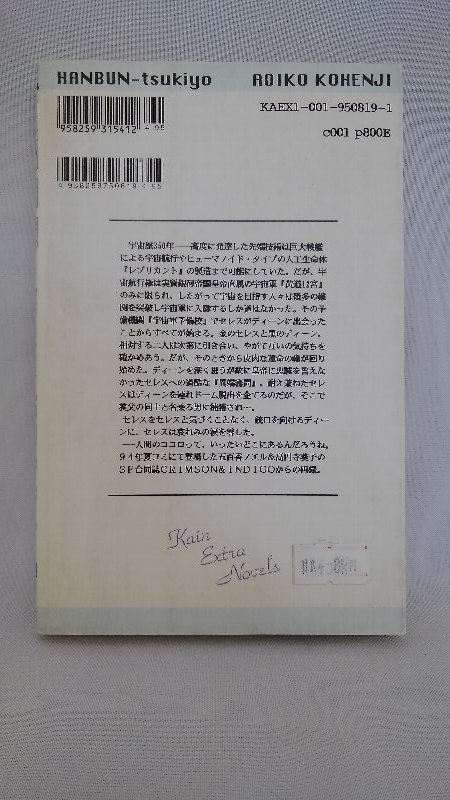 HANBUN-tsukiyo AOIKO KOHENJI
958259 315412 495
KAEX1-001-950819-1
c001 p800E
宇宙歴350年――高度に発達した先端技術は巨大戦艦
による宇宙航行やヒューマノイド・タイプの人工生命体
『レプリカント』の製造まで可能にしていた。だが、宇
宙航行権は実質銀河帝国皇帝直属の宇宙軍『黄道12宮』
のみに限られ、したがって宇宙を目指す人々は幾多の難
関を突破し宇宙軍に入隊するしか道はなかった。その予
備機関『宇宙軍予備校』でセレスがディーンに出会った
ことからすべてが始まる。金のセレスと黒のディーン。
相対する二人は次第に引き合い、やがて互いの気持ちを
確かめあう。だが、そのときから皮肉な運命の輪が回り
始めた。ディーンを深く思うが故に皇帝に忠誠を誓えな
かったセレスへの過酷な 耐え兼ねたセレ
スはディーンを連れドーム脱出を企てるのだが、そこで
養父の同士と名乗る男に捕獲され…。
セレスをセレスと気づくことなく、銃口を向けるディー
ンに、セレスは哀れみの涙を零した。
――人間のココロって、いったいどこにあるんだろうね。
94年夏コミにて登場した五百香ノエル&高円寺葵子の
SF合同誌CRIMSON&INDIGOからの再録。
Kain
Extra
Novels